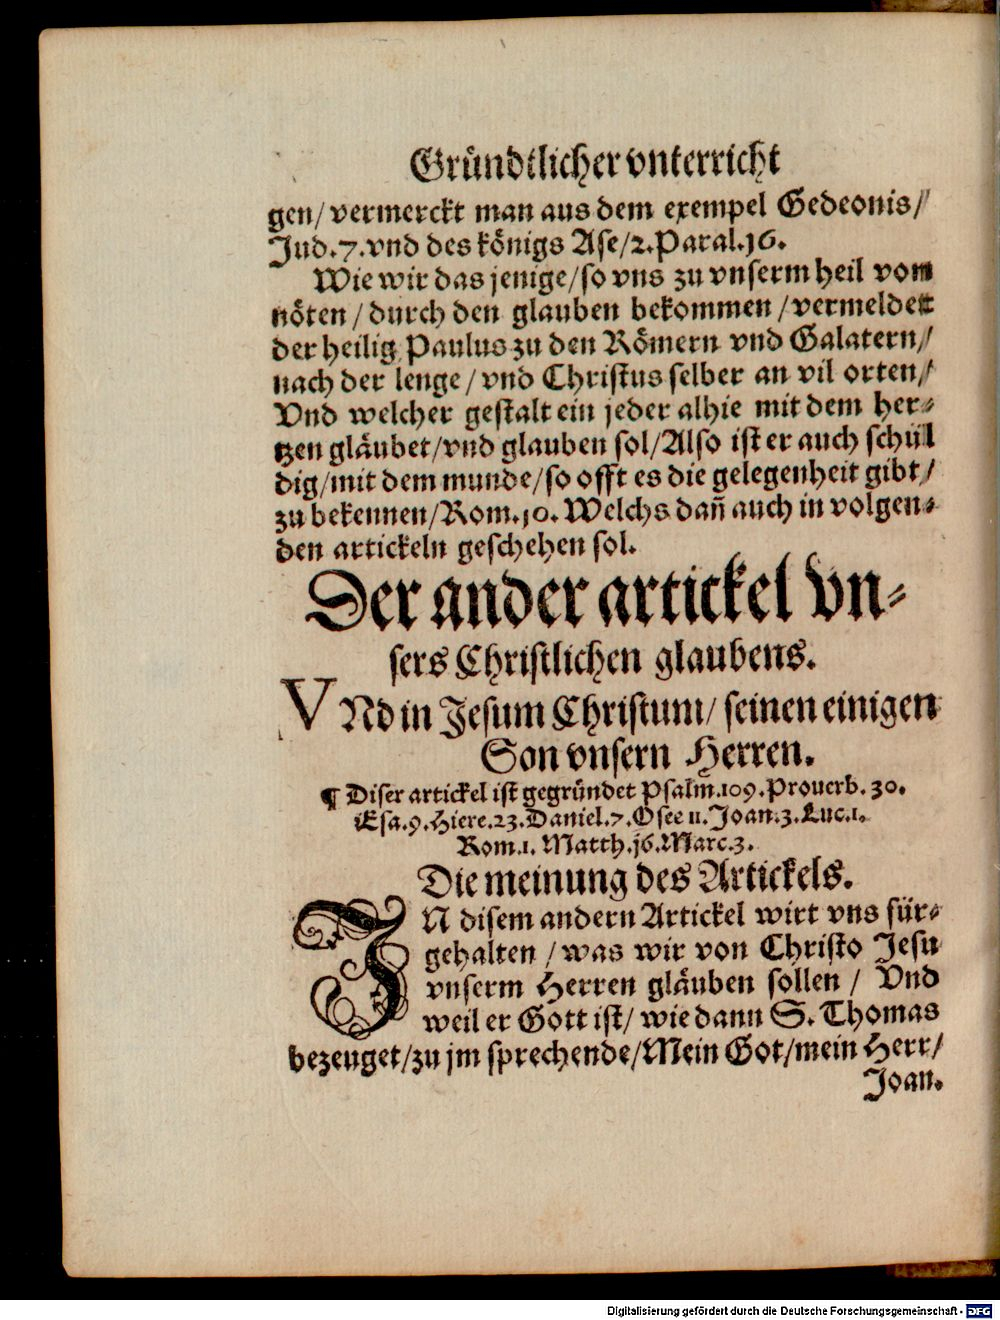 Gründtlicher vnterricht
gen/ vermerckt man aus dem exempel Gedeonis/
Jud.7.vnd des königs Ase/2.Paral.16.
Wie wir das jenige/so vns zu vnserm heil von
nöten/durch den glauben bekommen/vermeldet
der heilig Paulus zu den Römern vnd Galatern/
nach der lenge/vnd Christus selber an vil orten/
Vnd welcher gestalt ein jeder alhie mit dem her-
tzen gläubet/vnd glauben sol/Also ist er auch schül
dig/mit dem munde/so offt es die gelegenheit gibt/
zu bekennen/Rom.10. Welchs dañ auch in volgen-
den artickeln geschehen sol.
Der ander artickel vn-
sers Christlichen glaubens.
VNd in Jesum Christum/ seinen einigen
Son vnsern Herren.
¶ Diser artickel ist gegründet Psalm.109.Prouerb.30.
Esa.9.Hiere.23.Daniel.7.Osee 11.Joan.3.Luc.1.
Rom.1. Matth.16.Marc.3.
Die meinung des Artickels.
IN disem andern Artickel wirt vns für-
gehalten/was wir von Christo Jesu
vnserm Herren gläuben sollen/ Vnd
weil er Gott ist/ wie dann S. Thomas
bezeuget/zu jm sprechende/Mein Got/mein Herr/
Joan.
Digitalisierung gefördert durch die Deutsche Forschungsgemeinschaft - DFG